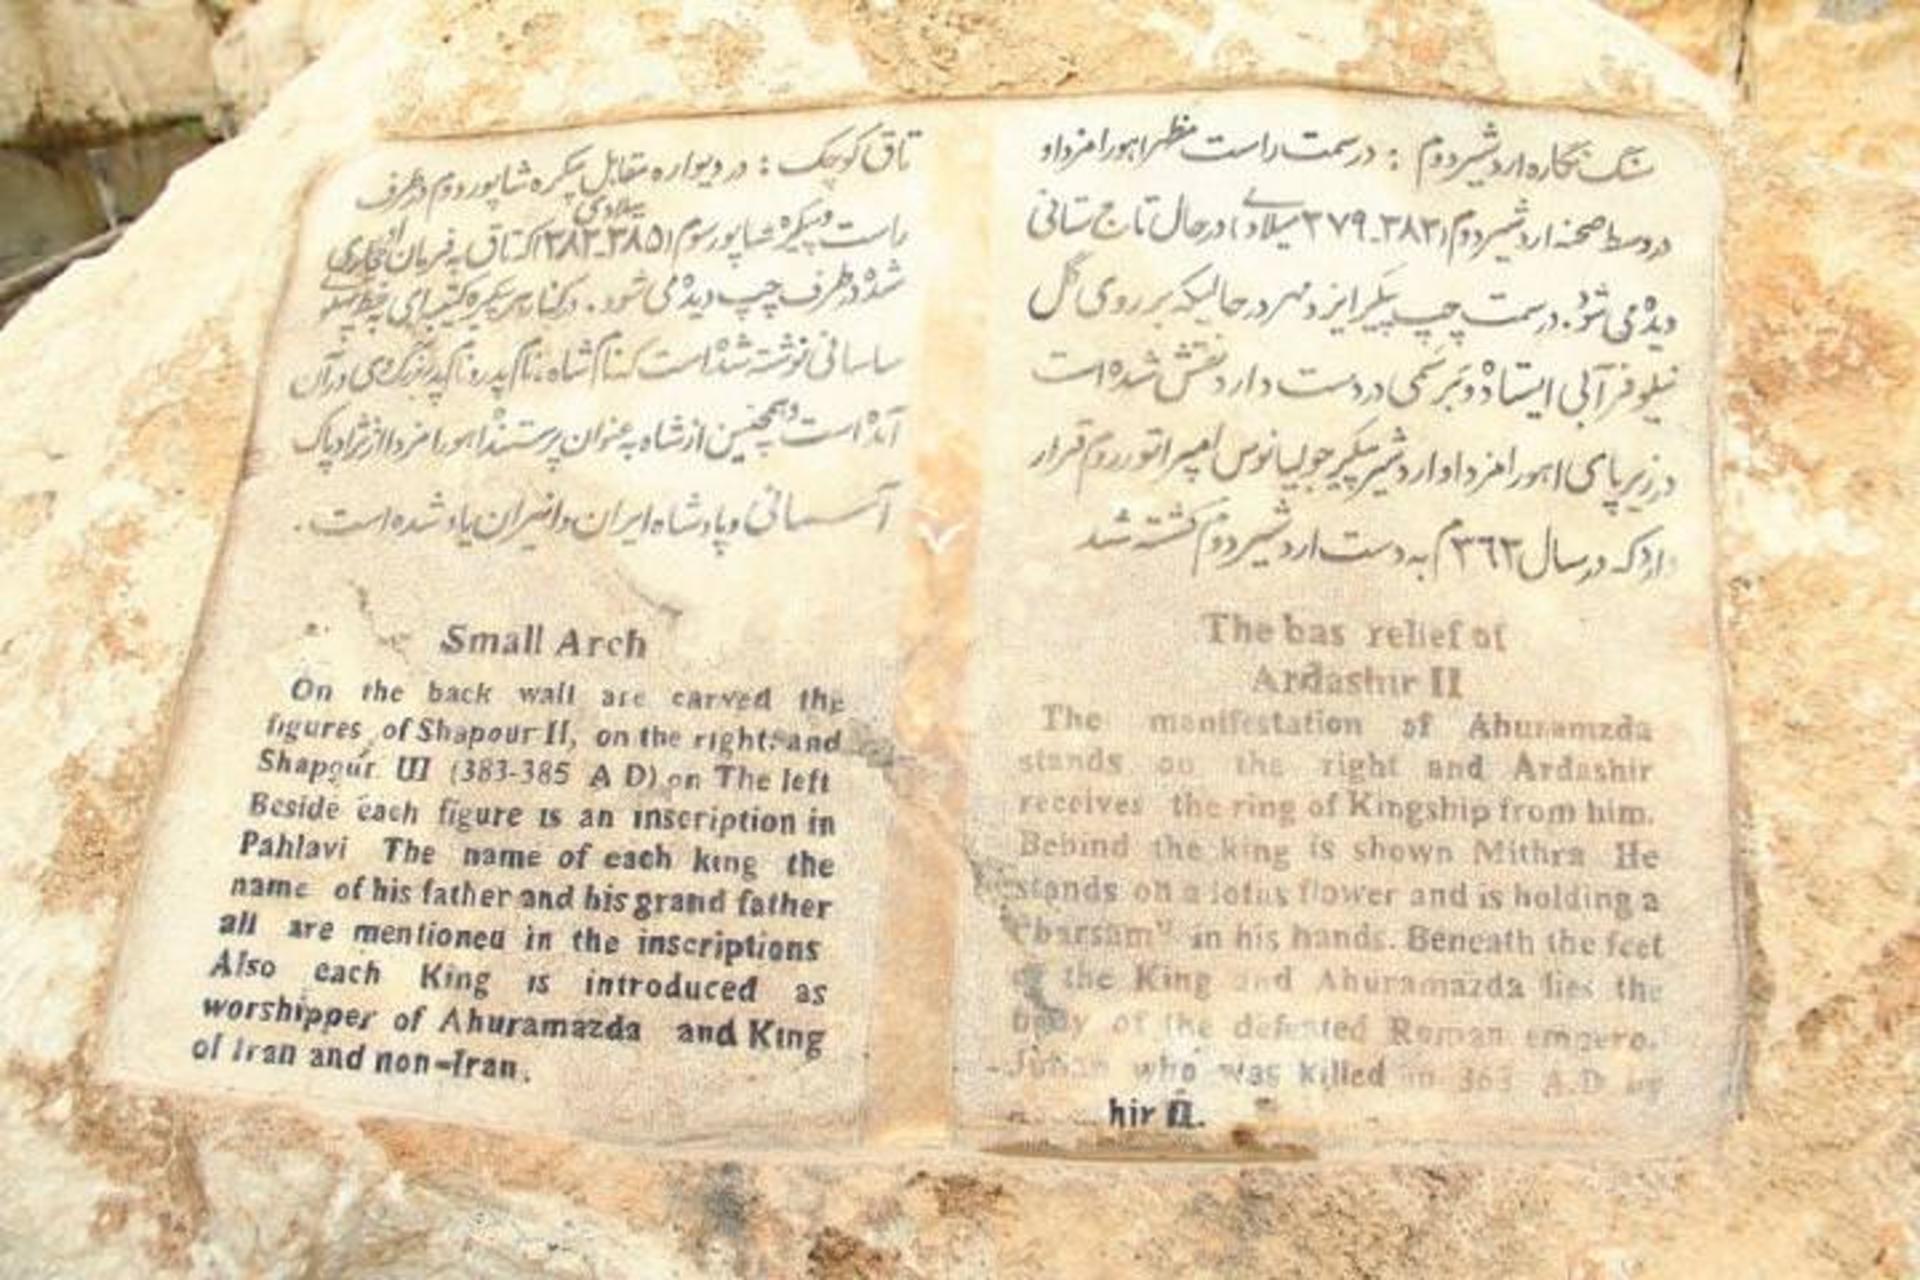 سنگ نگاره اردشیر دوم : در سمت راست مظهر اهورامزدا و
در وسط صحنه اردشیر دوم (٣٨٣-٣٧٩ میلادی) در حال تاج ستانی
دیده می شود. در سمت چپ پیکر ایزد مهر در حالیکه بر روی گل
نیلوفر آبی ایستاده و برسمی در دست دارد نقش شده است
در زیر پای اهورامزدا و اردشیر پیکر جولیانوس امپراتور روم قرار
دارد که در سال ٣٦٣ م به دست اردشیر دوم کشته شد
The bas relief of
Ardashir II
The manifestation of Ahuramzda
stands on the right and Ardashir
receives the ring of Kingship from him.
Behind the king is shown Mithra He
stands on a lotus flower and is holding a
"barsam" in his hands. Beneath the feet
of the King and Ahuramazda lies the
body of the defeated Roman empero.
Julian who was killed in 363 A.D by
hir II.
تاق کوچک : در دیواره مقابل پیکره شاپور دوم در طرف
راست و پیکره شاپور سوم (٣٨٥-٣٨٣ میلادی) که تاق به فرمان او حجاری
شده در طرف چپ دیده می شود. در کنار هر پیکره کتیبه ای به خط پهلوی
ساسانی نوشته شده است که نام شاه، نام پدر و نام پدربزرگ وی در آن
آمده است و همچنین از شاه به عنوان پرستنده اهورامزدا از نژاد پاک
آسمانی و پادشاه ایران و انیران یاد شده است.
Small Arch
On the back wall are carved the
figures of Shapour II, on the right. and
Shapour III (383-385 A D) on The left
Beside each figure is an inscription in
Pahlavi The name of each king the
name of his father and his grand father
all are mentioned in the inscriptions
Also each King is introduced as
worshipper of Ahuramazda and King
of Iran and non-Iran.